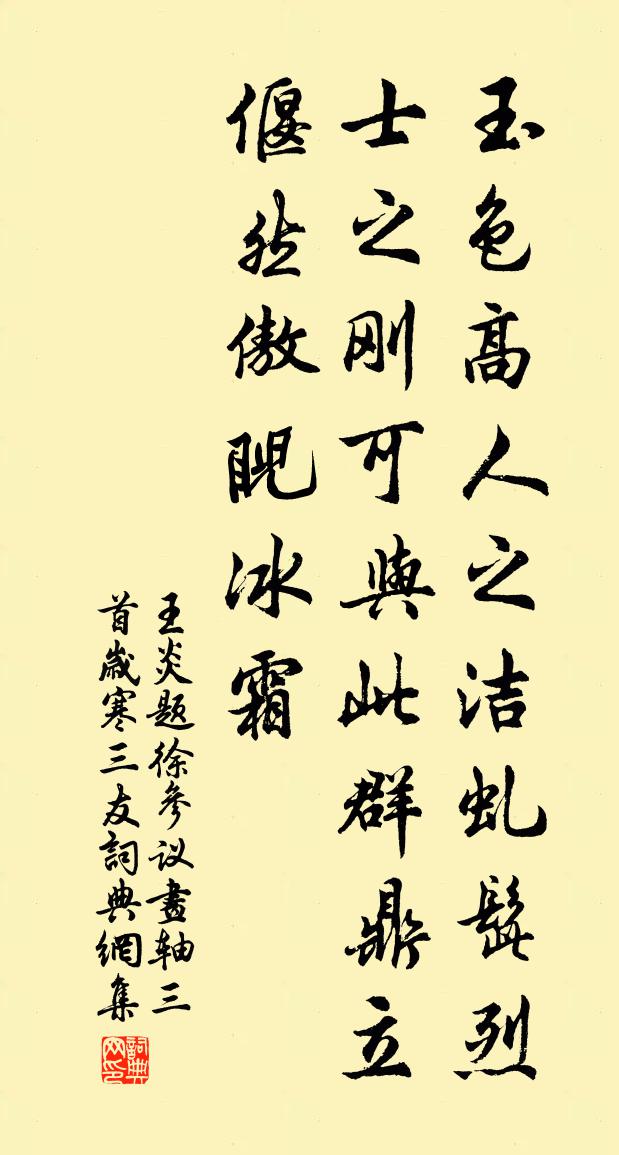 玉色高人之洁虬髯烈
士之刚可與此群鼎立
偃然傲睨冰霜
王炎题徐參议畫轴三
首歲寒三友詞典網集
詞典网印